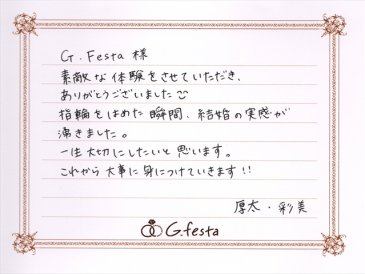 G.Festa 様
素敵な体験をさせていただき、
ありがとうございました
指輪をはめた瞬間、結婚の実感が
沸きました。
一生大切にしたいと思います。
これから大事に身につけていきます!!
厚太・彩美
G.festa